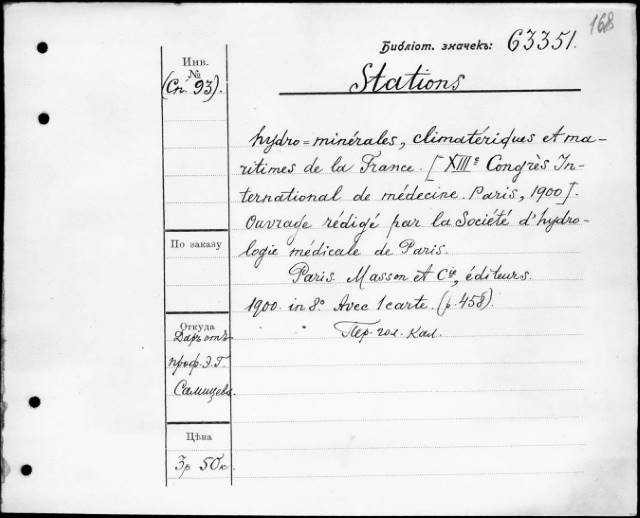 168
Библіот. значекъ: 63351.
Инв.
№
(Сп. 93).
Stations
hydro=minérales, climatériques et ma-
ritimes de la France. [XIIIe Congrès In-
ternational de médecine. Paris, 1900].
Ouvrage rédigé par la Société d'hydro-
logie médicale de Paris.
Paris. Masson et Cie, éditeurs.
1900. in 8°. Avec 1 carte. (p. 458).
Пер. гол. кал.
По заказу
Откуда
Даръ отъ
проф. Э. Г.
Цѣна
3р 50к.